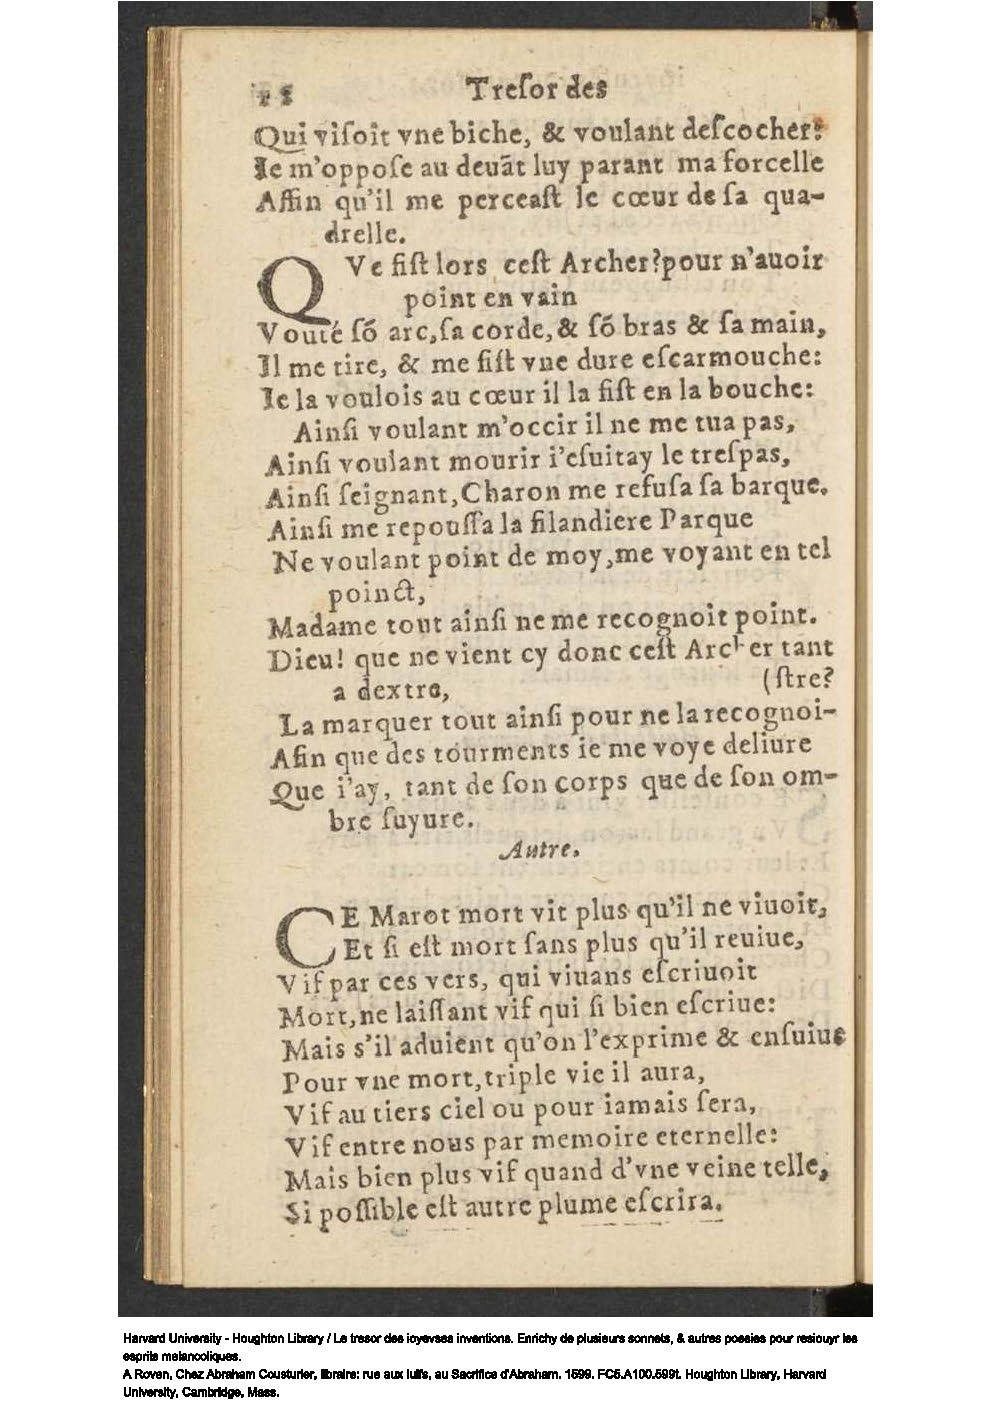 Tresor des
Qui viſoit vne biche, & voulant deſcocher:
Ie m'oppoſe au deuãt luy parant ma forcelle
Affin qu'il me perceaſt le cœur de ſa qua-
drelle.
QVe fiſt lors ceſt Archer?pour n'auoir
point en vain
Vouté ſõ arc,ſa corde,& ſõ bras & ſa main,
Il me tire, & me fiſt vne dure eſcarmouche:
Ie la voulois au cœur il la fiſt en la bouche:
Ainſi voulant m'occir il ne me tua pas,
Ainſi voulant mourir i'eſuitay le treſpas,
Ainſi ſeignant,Charon me refuſa ſa barque.
Ainſi me repouſſa la filandiere Parque
Ne voulant point de moy,me voyant en tel
poinct,
Madame tout ainſi ne me recognoit point.
Dieu! que ne vient cy donc ceſt Archer tant
a dextre, (ſtre?
La marquer tout ainſi pour ne la recognoi-
Afin que des tourments ie me voye deliure
Que i'ay, tant de ſon corps que de ſon om-
bre ſuyure.
Autre.
CE Marot mort vit plus qu'il ne viuoit,
Et ſi eſt mort ſans plus qu'il reuiue,
Vif par ces vers, qui viuans eſcriuoit
Mort,ne laiſſant vif qui ſi bien eſcriue:
Mais s'il aduient qu'on l'exprime & enſuiue
Pour vne mort,triple vie il aura,
Vif au tiers ciel ou pour iamais ſera,
Vif entre nous par memoire eternelle:
Mais bien plus vif quand d'vne veine telle,
Si poſſible eſt autre plume eſcrira.
Harvard University - Houghton Library / Le tresor des ioyevses inventions. Enrichy de plusieurs sonnets, & autres poesies pour resiouyr les
esprits melancoliques.
A Roven, Chez Abraham Cousturier, libraire: rue aux Iuifs, au Sacrifice d'Abraham. 1599. FC5.A100.599t. Houghton Library, Harvard
University, Cambridge, Mass.